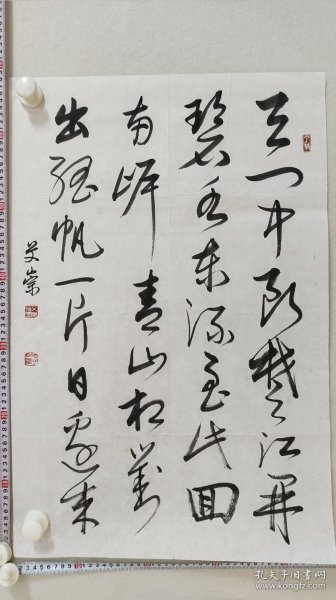 天门中断楚江开
碧水东流至此回
两岸青山相对
出孤帆一片日边来
孔夫子旧书网